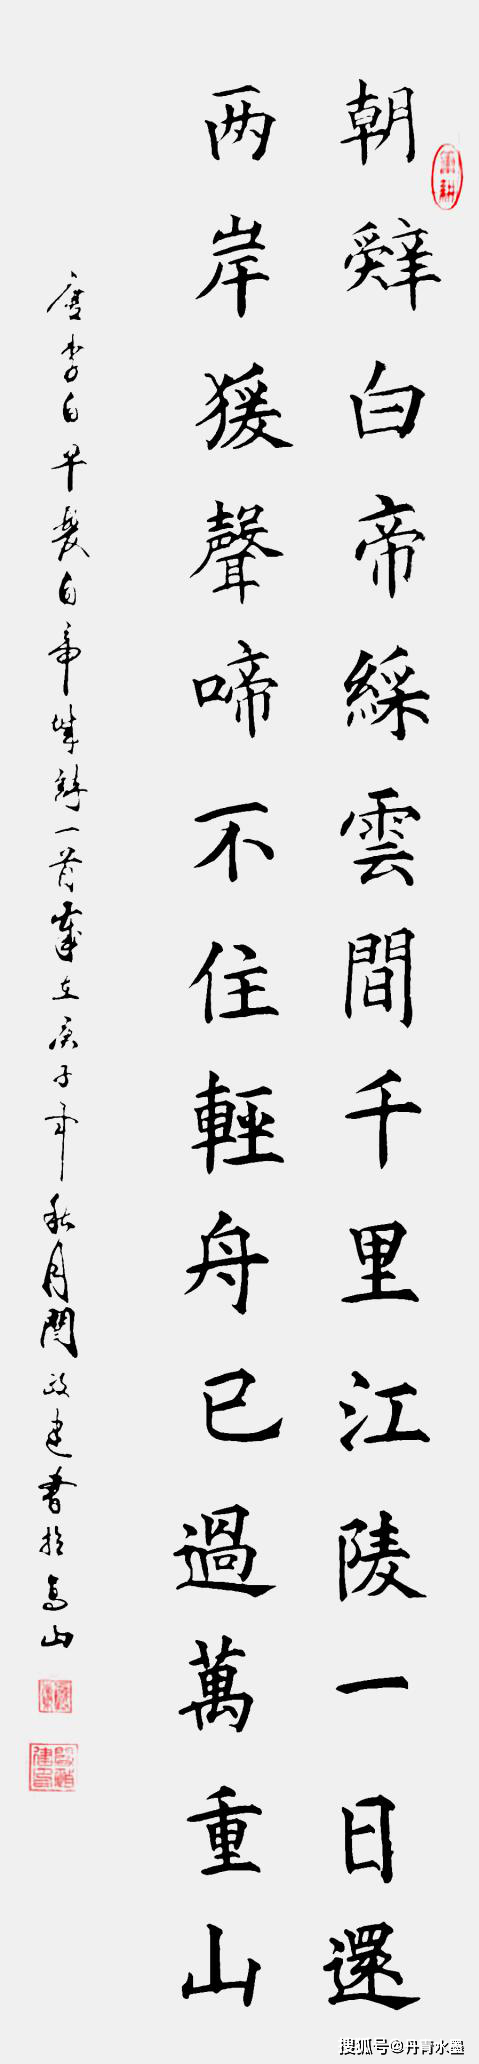 朝辤白帝綵雲間千里江陵一日還
两岸猨聲啼不住輕舟已過萬重山
唐李白早發白帝城詩一首歲在庚子年秋月閆政建書於高山
筆耕
搜狐号@丹青水墨